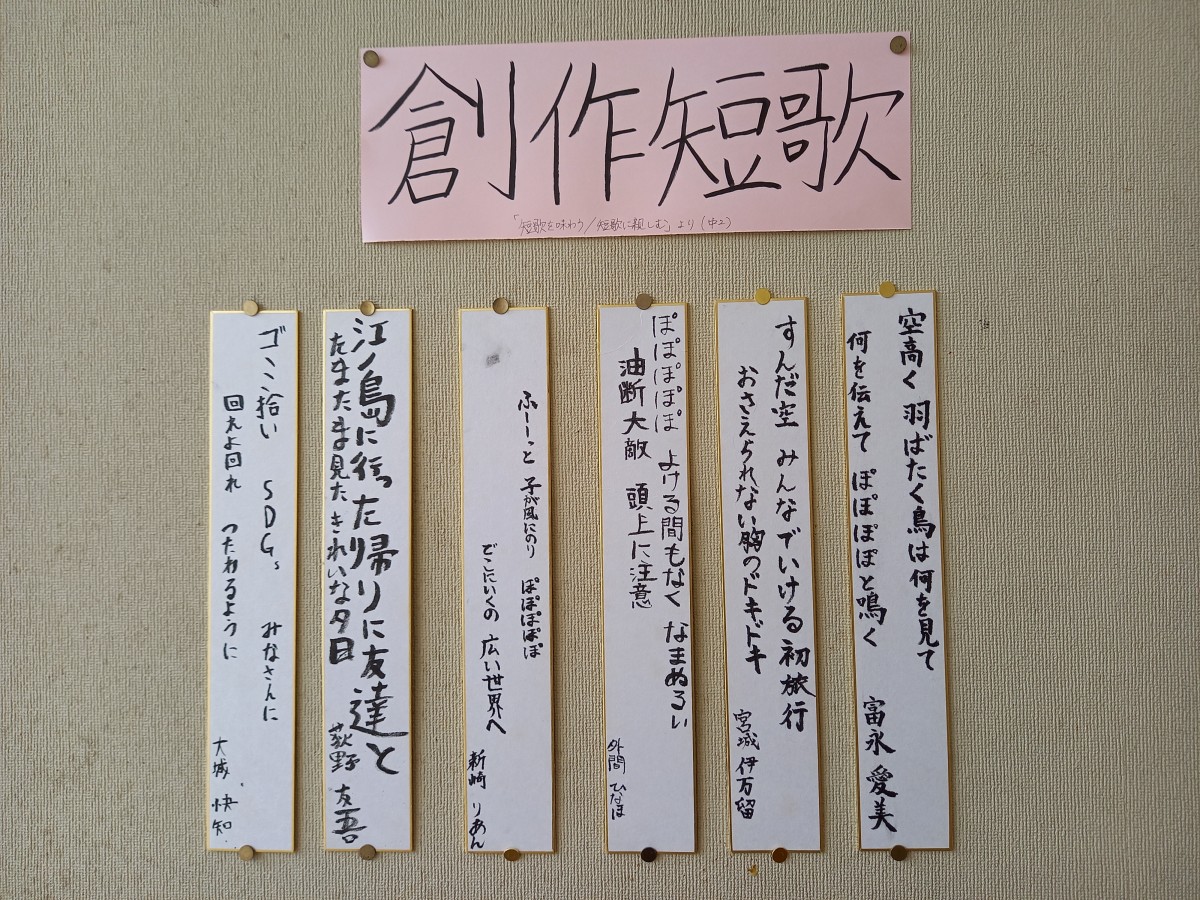 創作短歌
「短歌を味わう/短歌に親しむ」より(中2)
空高く 羽ばたく鳥は何を見て
何を伝えて ぽぽぽぽと鳴く
富永 愛美
すんだ空 みんなでいける初旅行
おさえられない胸のドキドキ
宮城 伊万留
ぽぽぽぽぽ よける間もなく なまぬるい
油断大敵 頭上に注意
外間 ひなほ
ふーーっと 子が風にのり ぽぽぽぽぽ
どこにいくの 広い世界へ
新崎 りあん
江ノ島に行った帰りに友達と
たまたま見た きれいな夕日
荻野 友吾
ゴミ拾い SDGs みなさんに
回れよ回れ つたわるように
大城 快知